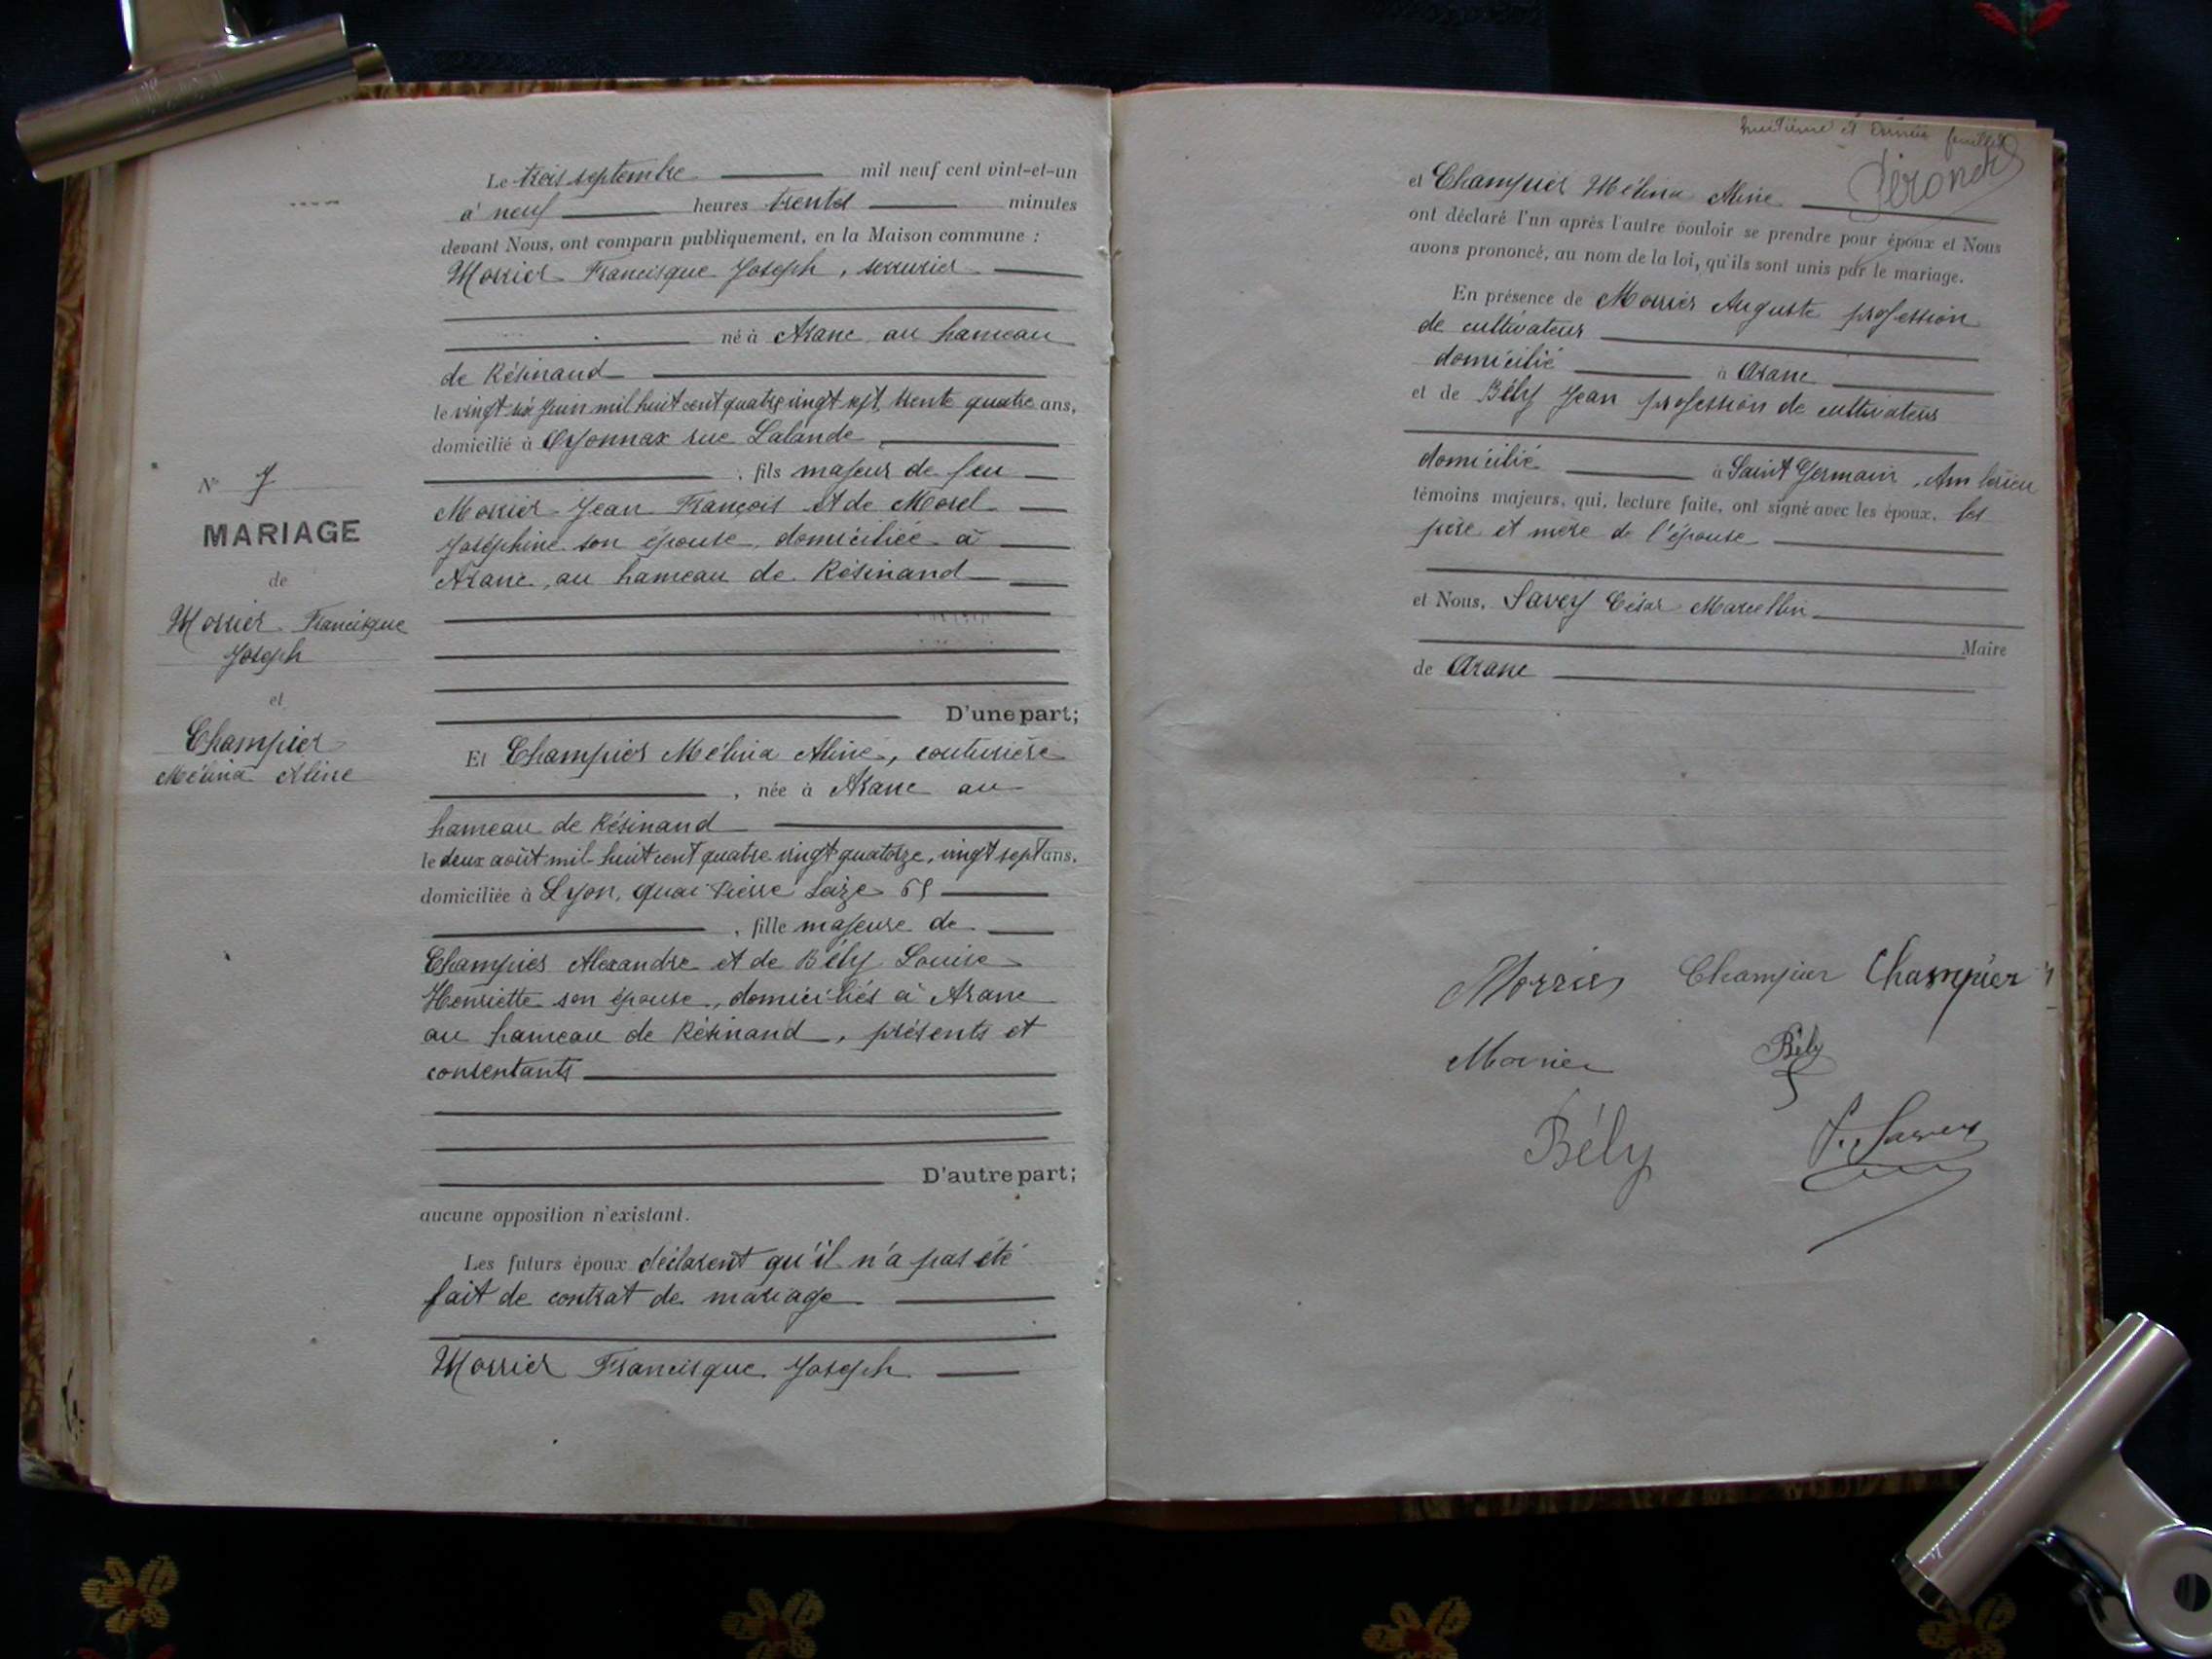 Le trois septembre mil neuf cent vint-et-un
à neuf heures trente minutes
devant Nous, ont comparu publiquement, en la Maison commune :
Morrier Francisque Joseph, serrurier
né à Aranc au hameau
de Résinand
le vingt six Juin mil huit cent quatre vingt sept, trente quatre ans,
domicilié à Oyonnax rue Lalande
, fils majeur de feu
Morrier Jean François et de Morel
Joséphine son épouse, domiciliée à
Aranc, au hameau de Résinand
D'une part;
Et Champier Mélina Aline, couturière
, née à Aranc au
hameau de Résinand
le deux août mil huit cent quatre vingt quatorze, vingt sept ans,
domiciliée à Lyon, quai Pierre Scize 65
, fille majeure de
Champier Alexandre et de Bély Louise
Henriette son épouse, domiciliés à Aranc
au hameau de Résinand, présents et
consentants
D'autre part;
aucune opposition n'existant.
Les futurs époux déclarent qu'il n'a pas été
fait de contrat de mariage
Morrier Francisque Joseph
N° 7
MARIAGE
de
Morrier Francisque
Joseph
et
Champier
Mélina Aline
huitième et feuillet
Péronch
et Champier Mélina Aline
ont déclaré l'un après l'autre vouloir se prendre pour époux et Nous
avons prononcé, au nom de la loi, qu'ils sont unis par le mariage.
En présence de Morrier Auguste profession
de cultivateur
domicilié à Aranc
et de Bély Jean profession de cultivateur
domicilié à Saint Germain, Ambérieu
témoins majeurs, qui, lecture faite, ont signé avec les époux, les
père et mère de l'épouse
et Nous, Savey César Marcellin
Maire
de Aranc
Morrier Champier Champier
Morrier Bély
Bély Savey